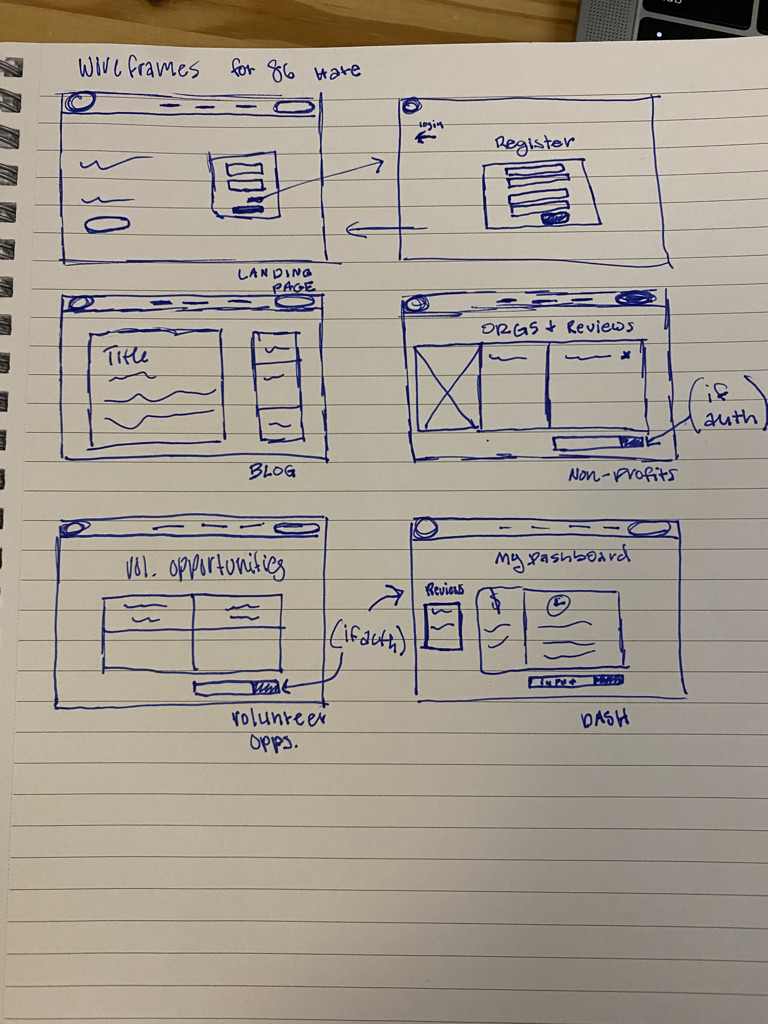 Wireframes for 86 Hate
Login
Register
LANDING
PAGE
Title
BLOG
ORGS + Reviews
(if
auth)
Non-profits
Vol. opportunities
(if auth)
Volunteer
opps.
My Dashboard
Reviews
$
input
DASH